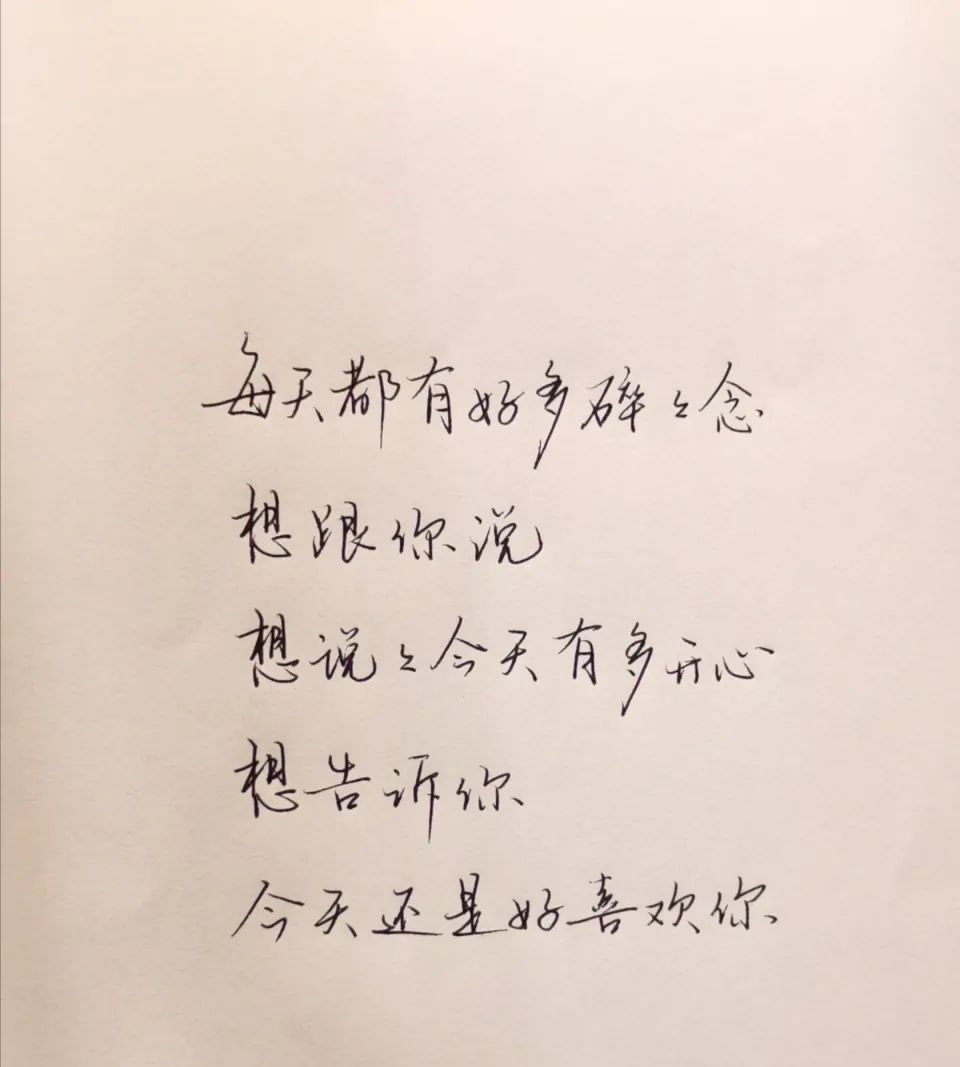 每天都有好多碎々念
想跟你说
想说々今天有多开心
想告诉你
今天还是好喜欢你